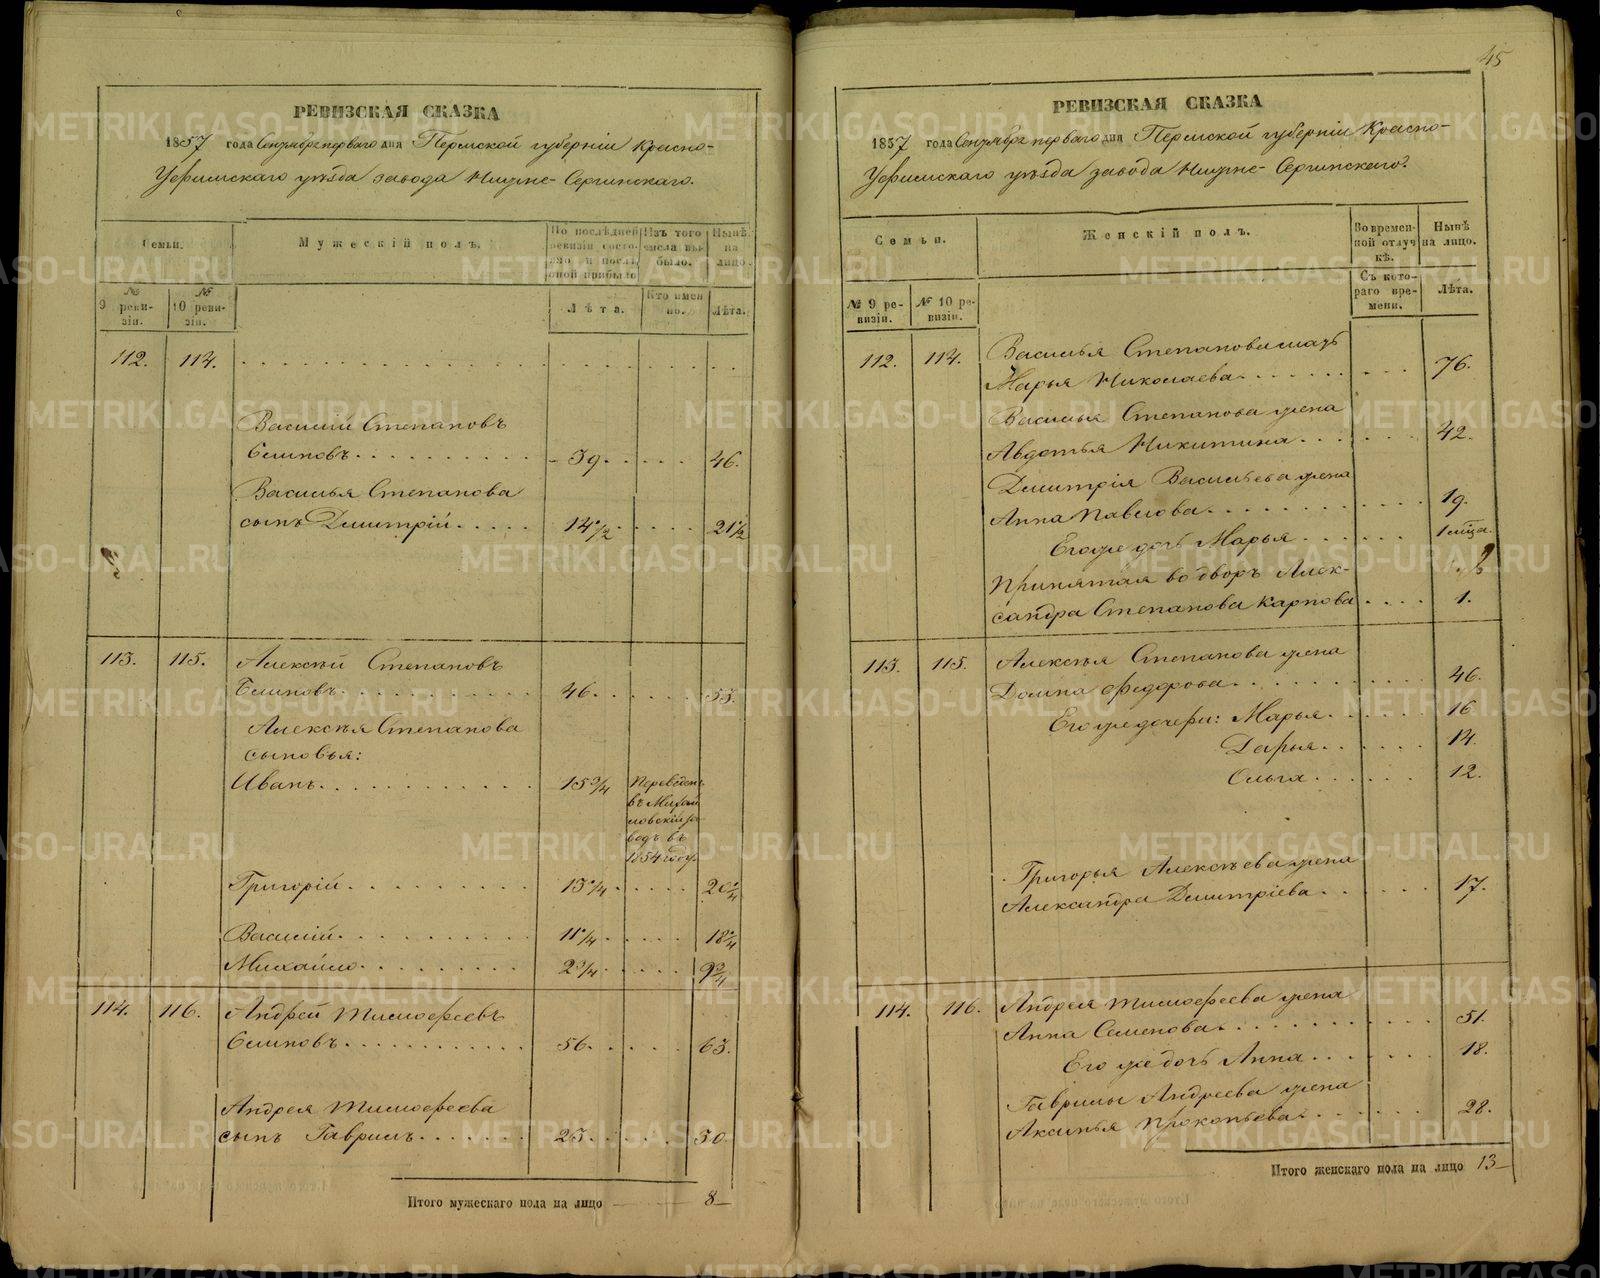 45
РЕВИЗСКАЯ СКАЗКА
1857 года Сентября перваго дня Пермской губерніи Красно-
Уфимскаго уѣзда завода Нижне-Сергинскаго.
Семьи.
Мужескій полъ.
По послѣдней ревизіи состо-яло и послѣ оной прибыло
Изъ того числа вы-было.
Нынѣ на лицо.
№ 9 реви-зіи.
№ 10 реви-зіи.
Лѣта.
Кто имен но.
Лѣта.
112. 114.
Василій Степановъ
39. 46.
Василья Степанова
сынъ Дмитрій 14 1/2 21 1/2
113. 115. Алексѣй Степановъ
46. 53.
Алексѣя Степанова
сыновья:
Иванъ 15 3/4 Переведенъ
въ Михай
ловскій за
водъ въ
1854 году.
Григорій 13 1/4 20 1/4
Василій 11 1/4 18 1/4
Михайло 2 3/4 9 3/4
114. 116. Андрей Тимофеевъ
56. 63.
Андрея Тимофеева
сынъ Гаврилъ 23 30
Итого мужескаго пола на лицо 8
РЕВИЗСКАЯ СКАЗКА
1857 года Сентября перваго дня Пермской губерніи Красно-
Уфимскаго уѣзда завода Нижне-Сергинскаго.
Семьи.
Женскій полъ.
Во времен-ной отлуч кѣ.
Нынѣ на лицо.
№ 9 ре-визіи.
№ 10 ре-визіи.
Съ кото-раго вре-мени.
Лѣта.
112. 114. Василья Степанова мать
Марья Николаева 76.
Василья Степанова жена
Авдотья Никитина 42.
Дмитрія Васильева жена
Анна Павлова 19.
Его же дочь Марья 1 мѣсца.
Принятая во дворъ Алек-
сандра Степанова Карпова 1.
113. 115. Алексѣя Степанова жена
Домна Федорова 46.
Его же дочери: Марья 16
Дарья 14.
Ольга 12.
Григорья Алексѣева жена
Александра Дмитріева 17.
114. 116. Андрея Тимофеева жена
Анна Семенова 51.
Его же дочь Анна 18.
Гаврилы Андреева жена
Аксинья Прокопьева 28.
Итого женскаго пола на лицо 13
METRIKI.GASO-URAL.RU